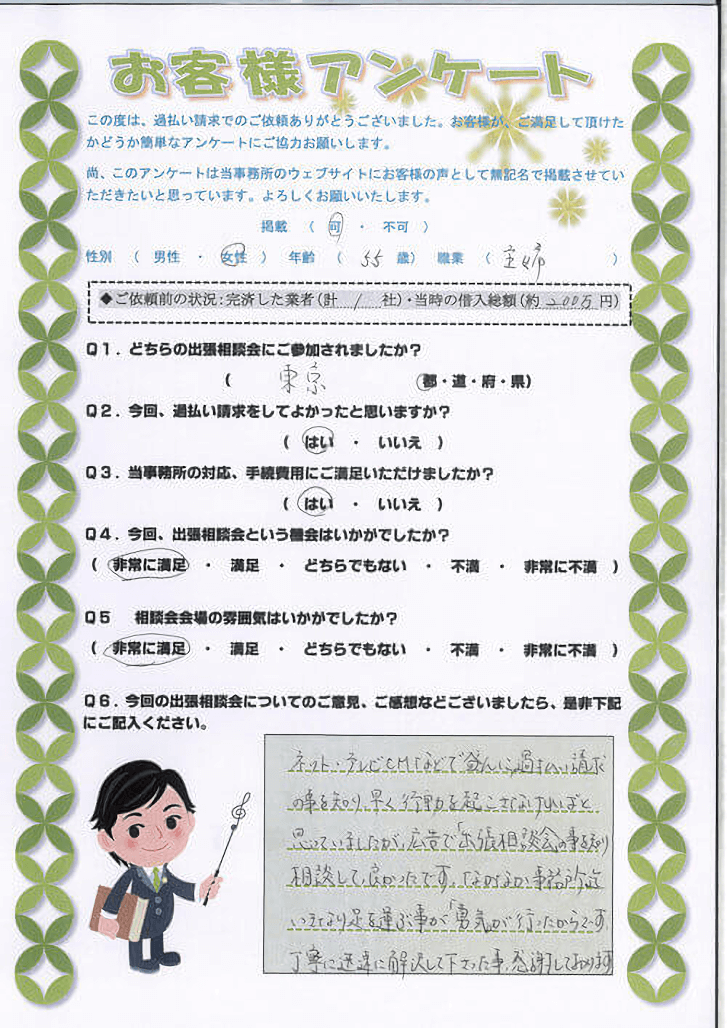 お客様アンケート
この度は、過払い請求でのご依頼ありがとうございました。お客様が、ご満足して頂けた
かどうか簡単なアンケートにご協力お願いします。
尚、このアンケートは当事務所のウェブサイトにお客様の声として無記名で掲載させてい
ただきたいと思っています。よろしくお願いいたします。
掲載 ( 可 ・ 不可 )
性別 ( 男性 ・ 女性 ) 年齢 ( 55 歳) 職業 ( 主婦 )
◆ご依頼前の状況:完済した業者(計 1 社)・当時の借入総額(約 200万 円)
Q1．どちらの出張相談会にご参加されましたか?
( 東京 都・道・府・県)
Q2．今回、過払い請求をしてよかったと思いますか?
( はい ・ いいえ )
Q3．当事務所の対応、手続費用にご満足いただけましたか?
( はい ・ いいえ )
Q4．今回、出張相談会という機会はいかがでしたか?
( 非常に満足 ・ 満足 ・ どちらでもない ・ 不満 ・ 非常に不満 )
Q5 相談会会場の雰囲気はいかがでしたか?
( 非常に満足 ・ 満足 ・ どちらでもない ・ 不満 ・ 非常に不満 )
Q6．今回の出張相談会についてのご意見、ご感想などございましたら、是非下記
にご記入ください。
ネット・テレビCMなどで盛んに過払い請求
の事を知り、早く行動を起こさなければと
思っていましたが、広告で「出張相談会」の事を知り
相談して良かったです。なかなか事務所迄
いきなり足を運ぶ事が「勇気」が行ったからです。
丁寧に迅速に解決して下さった事、感謝しております